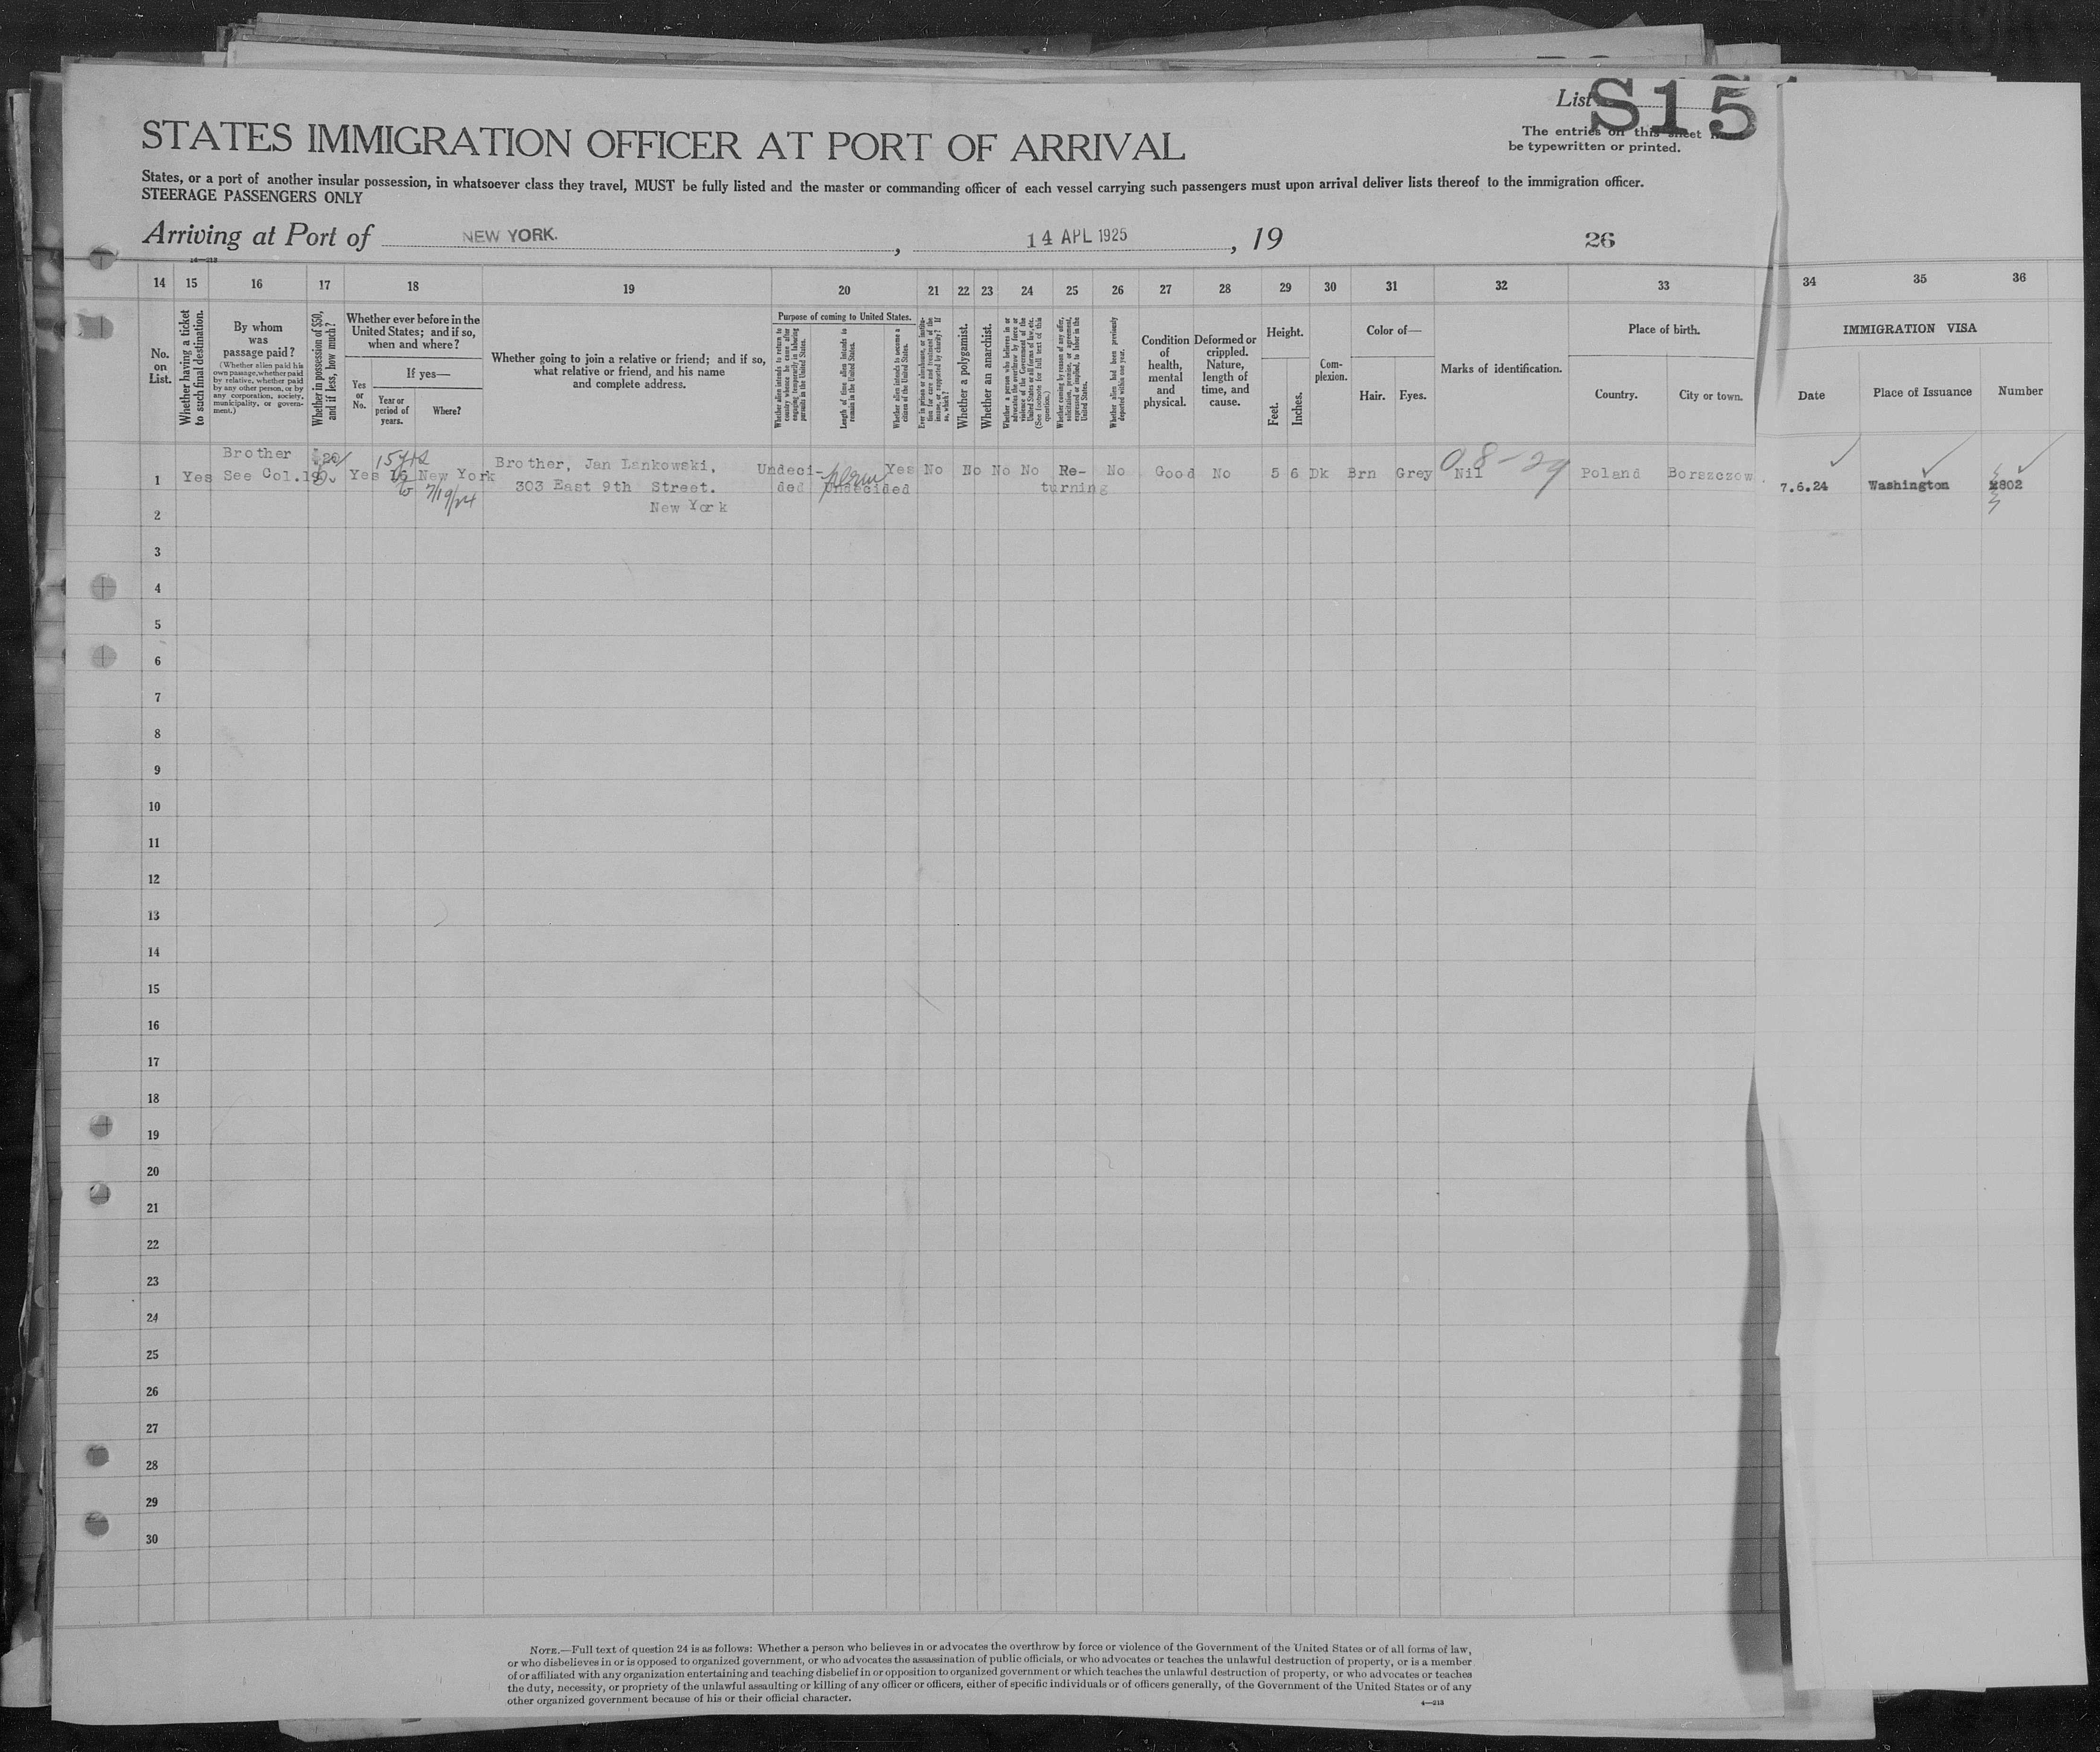 List S15
The entries on this sheet must
be typewritten or printed.
STATES IMMIGRATION OFFICER AT PORT OF ARRIVAL
States, or a port of another insular possession, in whatsoever class they travel, MUST be fully listed and the master or commanding officer of each vessel carrying such passengers must upon arrival deliver lists thereof to the immigration officer.
STEERAGE PASSENGERS ONLY
Arriving at Port of NEW YORK. , 14 APL 1925 , 19 26
14—213
14 15 16 17 18 19 20 21 22 23 24 25 26 27 28 29 30 31 32 33 34 35 36
No. on List.
Whether having a ticket to such final destination.
By whom was passage paid?
(Whether alien paid his own passage, whether paid by relative, whether paid by any other person, or by any corporation, society, municipality, or government.)
Whether in possession of $50, and if less, how much?
Whether ever before in the United States; and if so, when and where?
Yes or No.
If yes—
Year or period of years.
Where?
Whether going to join a relative or friend; and if so, what relative or friend, and his name and complete address.
Purpose of coming to United States.
Whether alien intends to return to country whence he came after engaging temporarily in laboring pursuits in the United States.
Length of time alien intends to remain in the United States.
Whether alien intends to become a citizen of the United States.
Ever in prison or almshouse, or institution for care and treatment of the insane, or supported by charity? If so, which?
Whether a polygamist.
Whether an anarchist.
Whether a person who believes in or advocates the overthrow by force or violence of the Government of the United States or all forms of law, etc. (See footnote for full text of this question.)
Whether coming by reason of any offer, solicitation, promise, or agreement, expressed or implied, to labor in the United States.
Whether alien had been previously deported within one year.
Condition of health, mental and physical.
Deformed or crippled. Nature, length of time, and cause.
Height.
Feet.
Inches.
Complexion.
Color of—
Hair.
Eyes.
Marks of identification.
Place of birth.
Country.
City or town.
IMMIGRATION VISA
Date
Place of Issuance
Number
Brother 15 yrs 08-29
1 Yes See Col.19 Yes New York Brother, Jan Lankowski, Undeci- perm Yes No No No No Re- No Good No 5 6 Dk Brn Grey Nil Poland Borszczow
7/19/24 303 East 9th Street. ded Undecided turning 7.6.24 Washington 2802
2 New York
3
4
5
6
7
8
9
10
11
12
13
14
15
16
17
18
19
20
21
22
23
24
25
26
27
28
29
30
NOTE.—Full text of question 24 is as follows: Whether a person who believes in or advocates the overthrow by force or violence of the Government of the United States or of all forms of law,
or who disbelieves in or is opposed to organized government, or who advocates the assassination of public officials, or who advocates or teaches the unlawful destruction of property, or is a member
of or affiliated with any organization entertaining and teaching disbelief in or opposition to organized government or which teaches the unlawful destruction of property, or who advocates or teaches
the duty, necessity, or propriety of the unlawful assaulting or killing of any officer or officers, either of specific individuals or of officers generally, of the Government of the United States or of any
other organized government because of his or their official character.
4—213